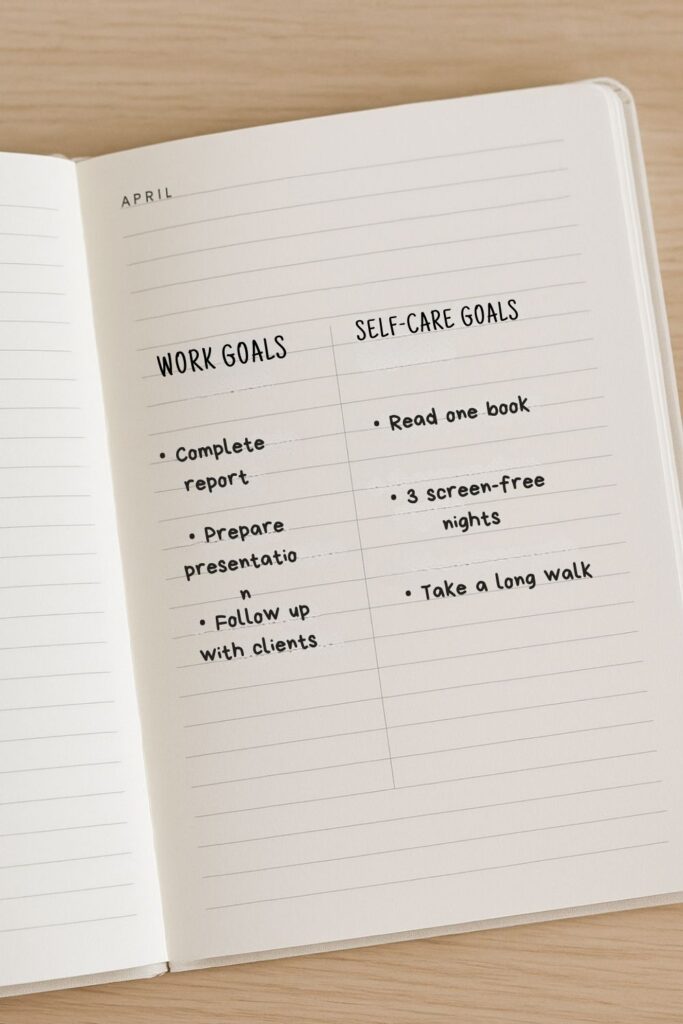 APRIL
WORK GOALS
• Complete
report
• Prepare
presentatio
n
• Follow up
with clients
SELF-CARE GOALS
• Read one book
• 3 screen-free
nights
• Take a long walk